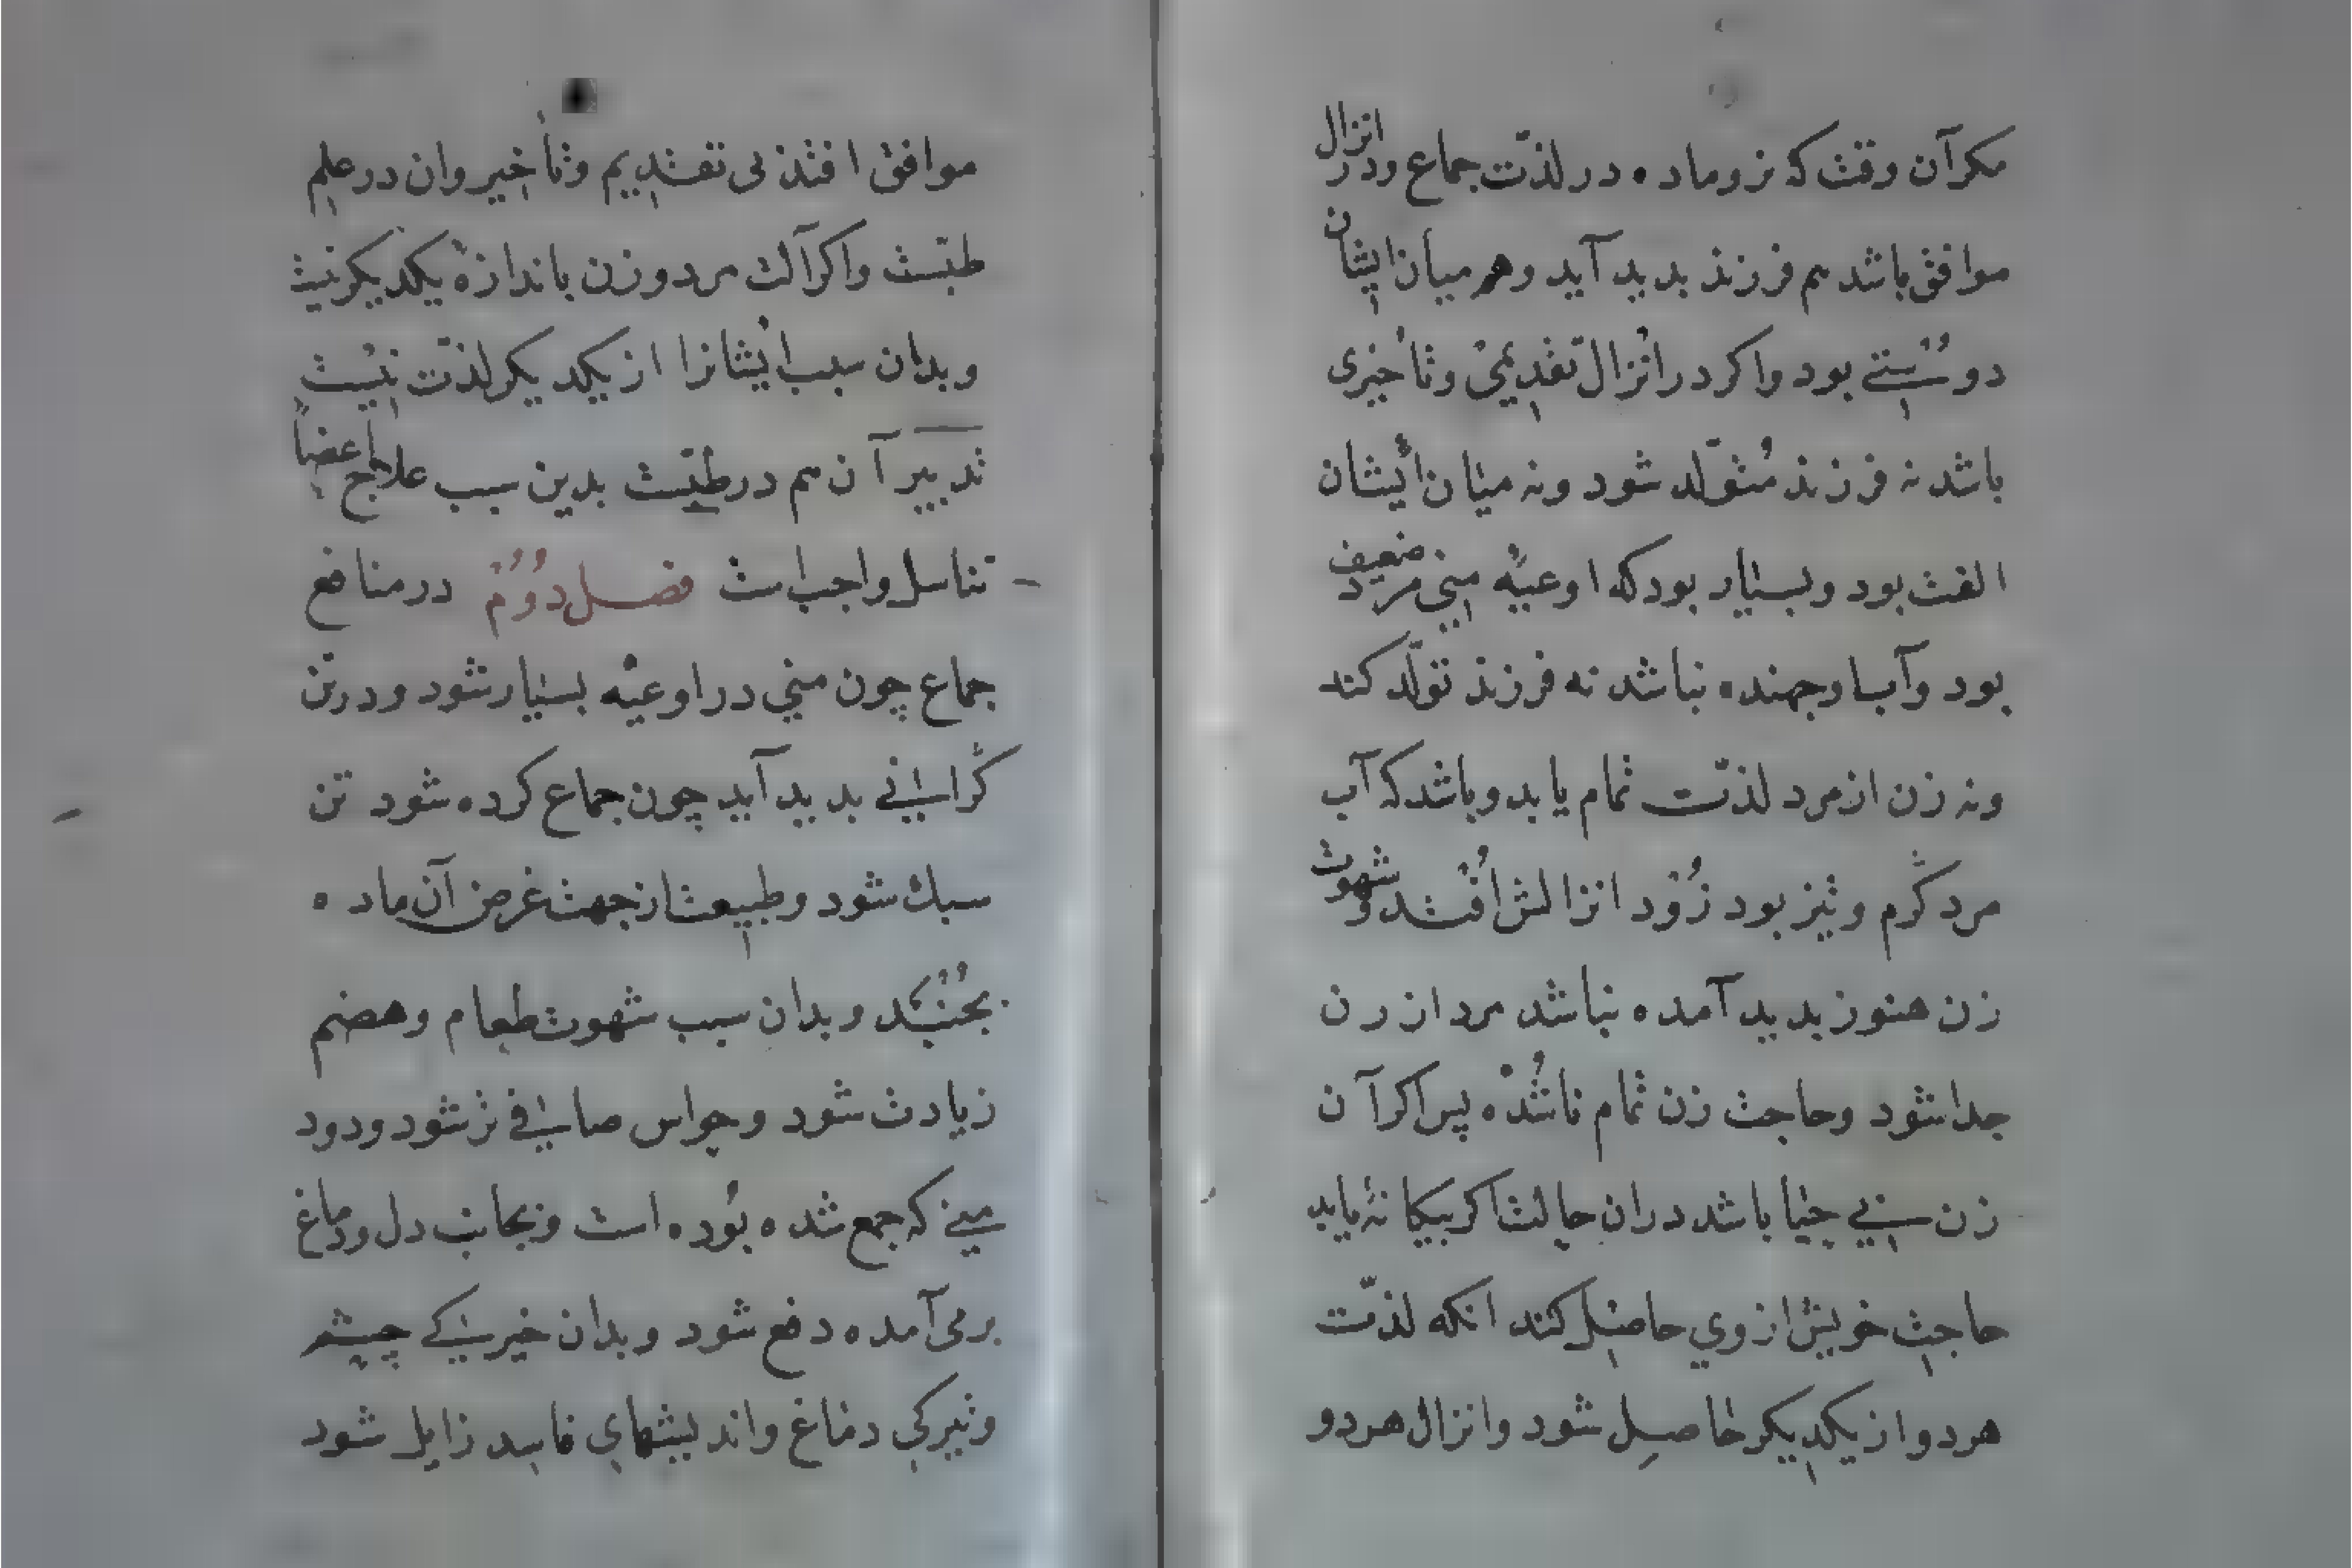 مکر آن وقت که نر و ماده در لذّت جماع ودر انزال
موافق باشد هم فرزند بدید آید وهم میان ایشان
دوستی بود واکر در انزال تقدیمی وتأخیری
باشد نه فرزند متولّد شود ونه میان ایشان
الفت بود وبسیار بود که اوعیه منی مرد ضعیف
بود وآب او جهنده نباشد نه فرزند تولّد کند
ونه زن از مرد لذّت تمام یابد وباشد که آب
مرد کرم وتیز بود زود انزالش افتد وشهوت
زن هنوز بدید آمده نباشد مرد از زن
جدا شود وحاجت زن تمام ناشده پس اکر آن
زن بی حیا باشد دران حالت اکر بیکانه یابد
حاجت خویش از وی حاصل کند انکه لذّت
هردو از یکدیکر حاصل شود وانزال هردو
موافق افتد بی تقدیم وتأخیر وان در علم
طبّست واکر آلت مرد وزن باندازه یکدیکر نیست
وبدان سبب ایشانرا از یکدیکر لذّت نیست
تدبیر آن هم در طبّست بدین سبب علاج اعضا
تناسل واجب است فصل دوم در منافع
جماع چون منی در اوعیه بسیار شود ودر تن
کرانی بدید آید چون جماع کرده شود تن
سبک شود وطبیعت از جهت غرض آن ماده
بجنبد وبدان سبب شهوت طعام وهضم
زیادت شود وحواس صافی تر شود ودود
منی که جمع شده بوده است وبجانب دل ودماغ
برمی آمده دفع شود وبدان خیرکی چشم
وتیرکی دماغ واندیشهای فاسد زایل شود